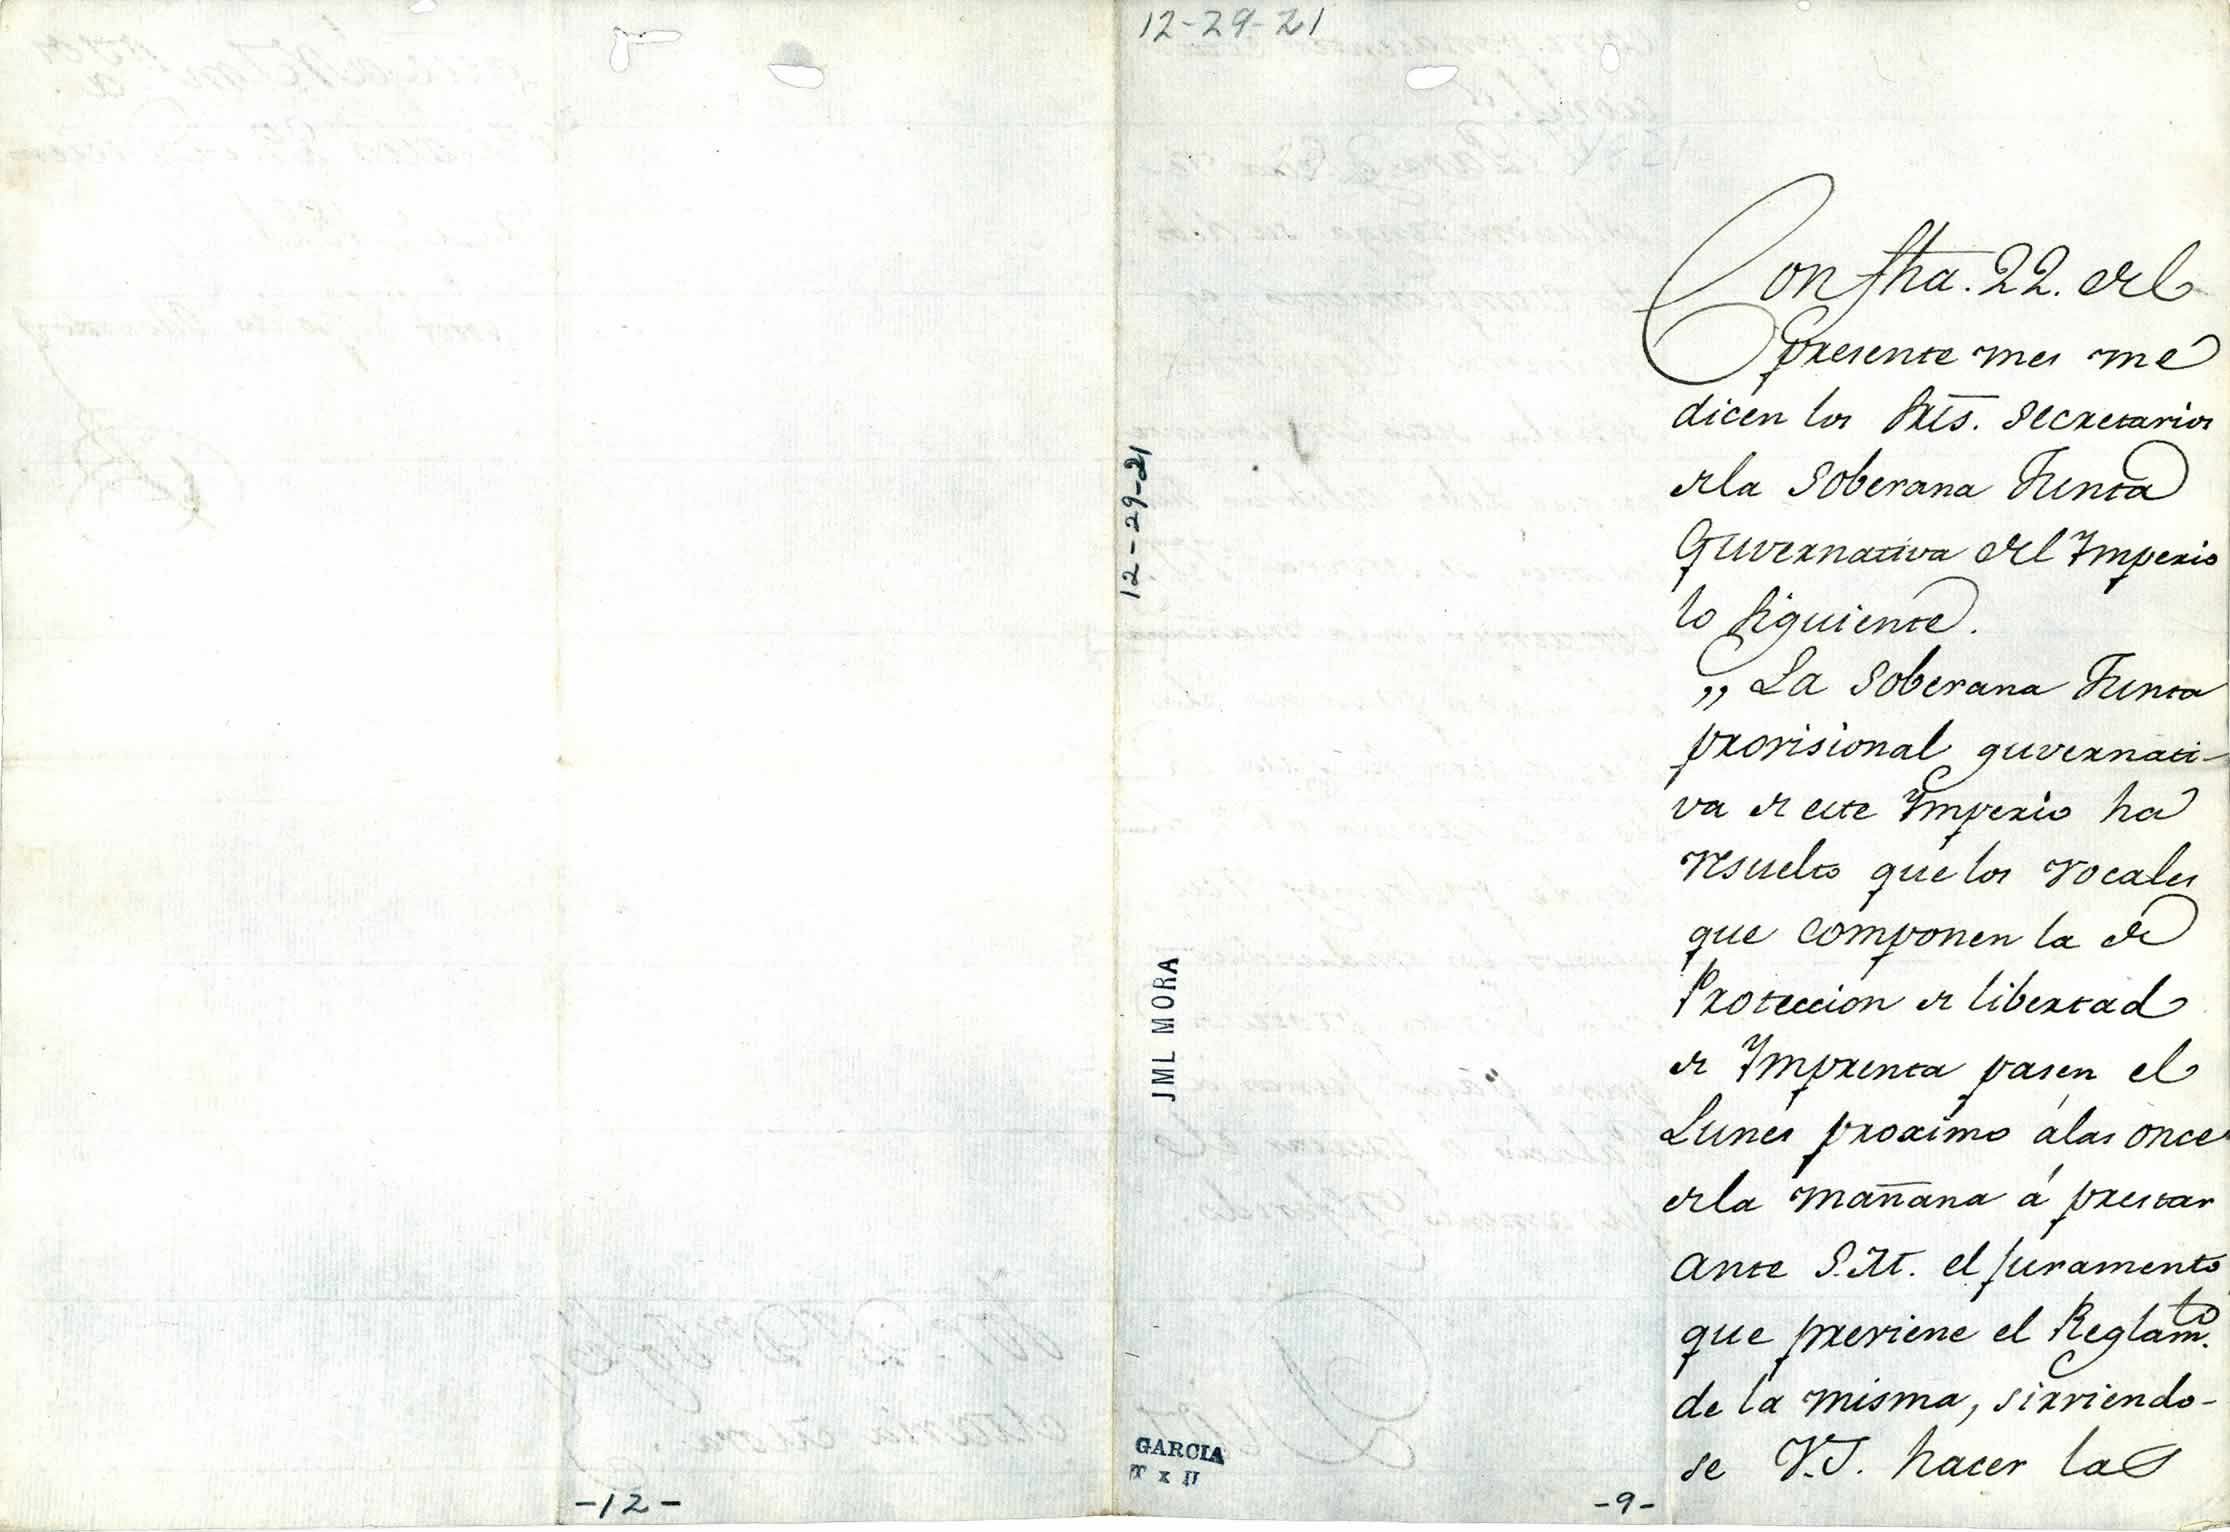 12-29-21
12-29-21
JML MORA
GARCIA
T x II
-12-
-9-
Con fha. 22. del
presente mes me
dicen los Sres. Secretarios
de la Soberana Junta
Guvernativa del Imperio
lo siguiente.
„ La Soberana Junta
provisional guvernati-
va de este Imperio ha
resuelto que los vocales
que componen la de
Proteccion de libertad
de Imprenta pasen el
Lunes proximo á las once
de la mañana á prestar
ante S.M. el juramento
que previene el Reglamto.
de la misma, sirviendo-
se V.S. hacer las